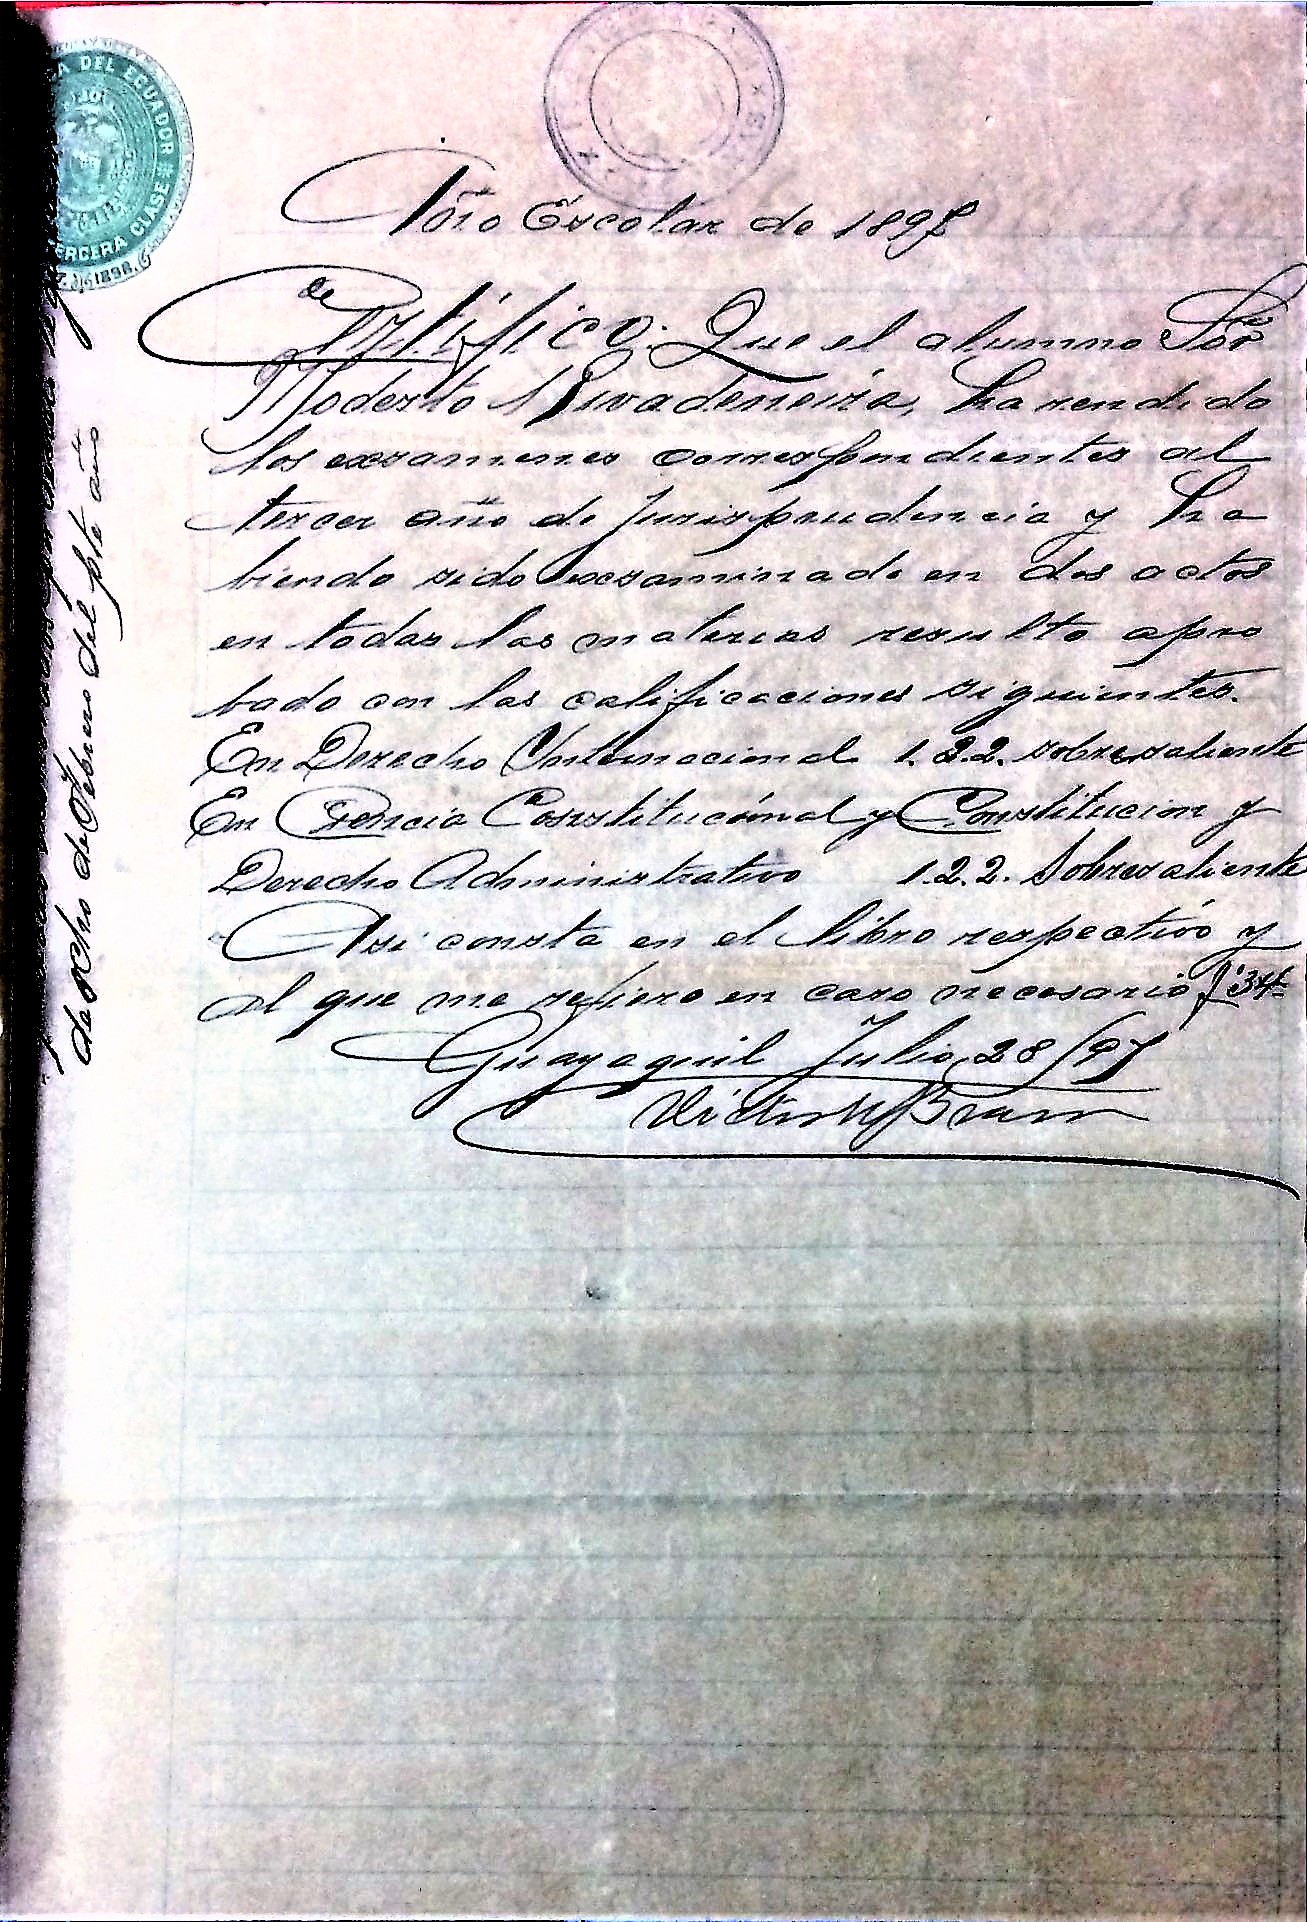 A DEL ECUADOR
TERCERA CLASE
1898
Año Escolar de 1897
Certifico: Que el alumno Sõr
Modesto Rivadeneira, ha rendido
los examenes correspondientes al
tercer año de Jurisprudencia y ha
biendo sido examinado en dos actos
en todas las materias resulto apro
bado con las calificaciones siguientes.
En Derecho Internacional 1.2.2. sobresaliente
En Ciencia Constitucional y Constitucion y
Derecho Administrativo 1.2.2. Sobresaliente
Asi consta en el libro respectivo y
al que me refiero en caso necesario f 34
Guayaquil Julio 28/97
Victor M
de ocho de Febrero del pte año